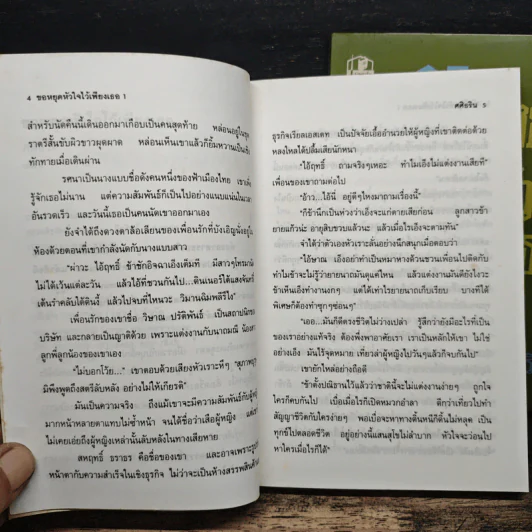 4 ขอหยุดหัวใจไว้เพียงเธอ 1
สำหรับนัดคืนนี้เดินออกมาเกือบเป็นคนสุดท้าย หล่อนอยู่ในชุด
ราตรีสั้นขับผิวขาวผุดผาด หล่อนเห็นเขาแล้วก็ยิ้มหวานเป็นเชิง
ทักทายเมื่อเดินผ่าน
รศนาเป็นนางแบบชื่อดังคนหนึ่งของฟ้าเมืองไทย เขาเพิ่ง
รู้จักเธอไม่นาน แต่ความสัมพันธ์ก็เป็นไปอย่างแนบแน่นในเวลา
อันรวดเร็ว และวันนี้เธอเป็นคนนัดเขาออกมาเอง
ยังจำได้ถึงดวงตาล้อเลียนของเพื่อนรักที่บังเอิญนั่งอยู่ใน
ห้องด้วยตอนที่เขากำลังนัดกับนางแบบสาว
ไอ้ฤทธิ์ ช้าชักอิจฉาเอ็งเต็มที มีสาวๆโทรมานัด
ไม่ได้เว้นแต่ละวัน แล้วไอ้ที่ชวนกันไป...ดินเนอร์ใต้แสงจันทร์
เต้นรำคลับใต้ดินนี้ แล้วไปจบที่ไหนวะ วิมานฉิมพลีรึไง"
เพื่อนรักของเขาชื่อ วิษาณ ปรีติพันธ์ เป็นสถาปนิกของ
บริษัท และกลายเป็นญาติด้วย เพราะแต่งงานกับนาถมณี น้องสาว
ลูกพี่ลูกน้องของเขาเอง
"ไม่บอกโว้ย..." เขาตอบด้วยเสียงหัวเราะหึๆ
มีพึงพูดถึงสตรีลับหลัง อย่างไม่ให้เกียรติ"
มันเป็นความจริง ถึงแม้เขาจะมีความสัมพันธ์กับผู้หญิง
มากหน้าหลายตาแทบไม่ซ้ำหน้า จนได้ชื่อว่าเสือผู้หญิง แต่เขา
ไม่เคยเอ่ยถึงผู้หญิงเหล่านั้นลับหลังในทางเสียหาย
สหฤทธิ์ ธราธร คือชื่อของเขา และอาจเพราะรูปร่าง
หน้าตากับความสำเร็จในเชิงธุรกิจ ไม่ว่าจะเป็นห้างสรรพสินค้า
ศศิอริน 5
ธุรกิจเรียลเอสเตท เป็นปัจจัยเอื้ออำนวยให้ผู้หญิงที่เขาติดต่อด้วย
หลงใหลได้ปลื้มเสียนักหนา
"ไอ้ฤทธิ์ ถามจริงๆเหอะ ทำไมเอ็งไม่แต่งงานเสียที"
เพื่อนของเขาถามต่อไป
"อ้าว...ไอ้นี่ อยู่ดีๆไหงมาถามเรื่องนี้"
"ก็ข้านึกเป็นห่วงว่าเอ็งจะแก่ตายเสียก่อน ลูกสาวข้า
ยายแก้วน่ะ อายุสิบขวบแล้วนะ แล้วเมื่อไรเอ็งจะตามทัน"
จำได้ว่าตัวเองหัวเราะลั่นอย่างนึกสนุกเมื่อตอบว่า
"ไอ้ษาณ เอ็งอย่าทำเป็นหมาหางด้วนชวนเพื่อนไปติดกับ
ทำไมข้าจะไม่รู้ว่ายายนาถมันดุแค่ไหน แล้วแต่งงานมันดียังไงวะ
ข้าเห็นเอ็งทำงานงกๆ แต่ได้เท่าไรยายนาถเก็บเรียบ บางทีได้
พิเศษก็ต้องทำซุกๆซ่อนๆ"
"เออ...มันก็ดีตรงชีวิตไม่ว่างเปล่า รู้สึกว่ายังมีอะไรที่เป็น
ของเราอย่างแท้จริง ต้องพึ่งพาอาศัยเรา เราเป็นหลักให้เขา ไม่ใช่
อย่างเอ็ง มันไร้จุดหมาย เที่ยวล่าผู้หญิงไปวันๆแล้วก็จบกันไป"
เขายักไหล่อย่างถือดี
"ข้าตั้งปณิธานไว้แล้วว่าชาตินี้จะไม่แต่งงานง่ายๆ ถูกใจ
ใครก็คบกันไป เบื่อเมื่อไรก็เปิดหมวกอำลา ดีกว่าเที่ยวไปทำ
สัญญาชีวิตกับใครง่ายๆ พอเบื่อจะหาทางดิ้นหนีก็ดิ้นไม่หลุด เป็น
ทุกข์ไปตลอดชีวิต อยู่อย่างนี้แสนสุโขไม่ลำบาก หัวใจจะว่อนไป
หาใครเมื่อไรก็ได้"